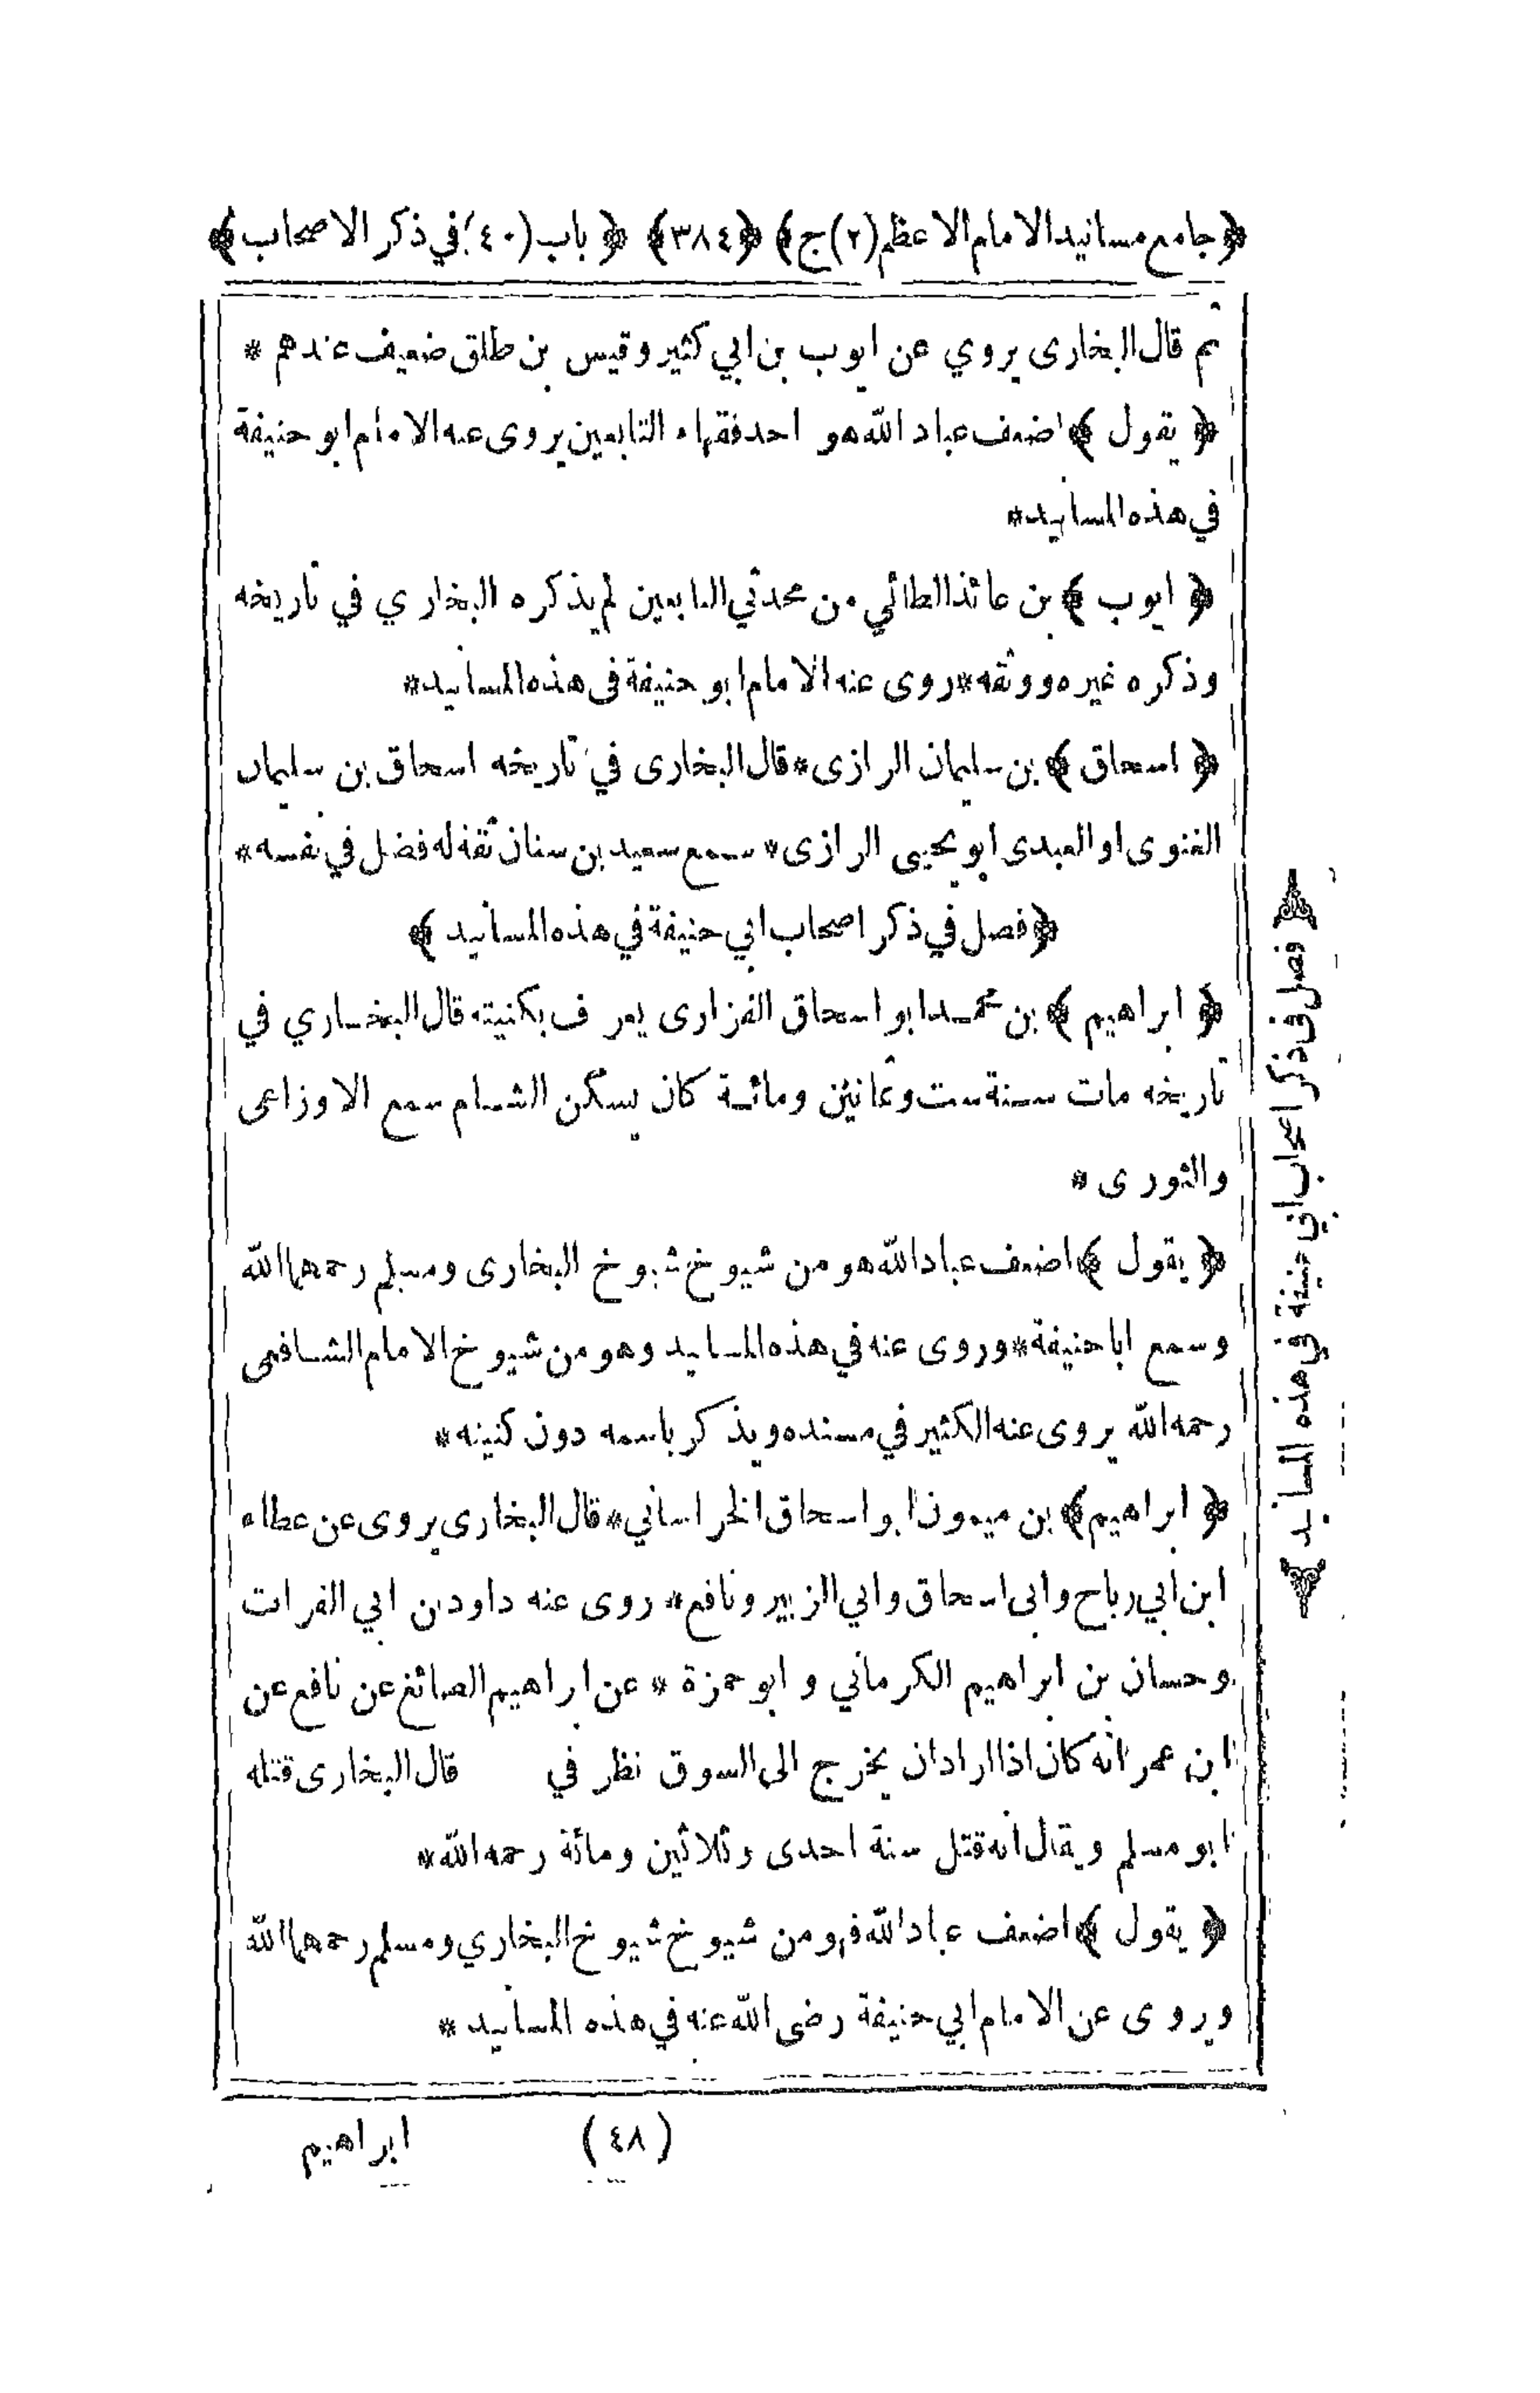 ﴿جامع مسانيد الامام الاعظم (٢) ج﴾ ﴿٣٨٤﴾ ﴿باب (٤٠) في ذكر الاصحاب﴾
ثم قال البخارى يروي عن ايوب بن ابي كثير وقيس بن طلق ضعيف عندهم *
﴿ يقول ﴾ اضعف عباد الله هو احد فقهاء التابعين يروى عنه الامام ابو حنيفة
في هذه المسانيد *
﴿ ايوب ﴾ بن عائذ الطائي من محدثي التابعين لم يذكره البخاري في تاريخه
وذكره غيره ووثقه * روى عنه الامام ابو حنيفة فى هذه المسانيد *
﴿ اسحاق ﴾ بن سليمان الرازى * قال البخارى في تاريخه اسحاق بن سليمان
الغنوى او العبدى ابو يحيى الرازى * سمع سعيد بن سنان ثقة له فضل في نفسه *
﴿ فصل في ذكر اصحاب ابي حنيفة في هذه المسانيد ﴾
﴿ ابراهيم ﴾ بن محمد ابو اسحاق الفزارى يعرف بكنيته قال البخاري في
تاريخه مات سنة ست وثمانين ومائة كان يسكن الشام سمع الاوزاعى
والثورى *
﴿ يقول ﴾ اضعف عباد الله هو من شيوخ شيوخ البخارى ومسلم رحمهما الله
وسمع ابا حنيفة * وروى عنه في هذه المسانيد وهو من شيوخ الامام الشافعى
رحمه الله يروى عنه الكثير في مسنده ويذكر باسمه دون كنيته *
﴿ ابراهيم ﴾ بن ميمون ابو اسحاق الخراساني * قال البخارى يروى عن عطاء
ابن ابي رباح وابى اسحاق وابي الزبير ونافع * روى عنه داود بن ابي الفرات
وحسان بن ابراهيم الكرماني و ابو حمزة * عن ابراهيم الصائغ عن نافع عن
ابن عمر انه كان اذا اراد ان يخرج الى السوق نظر في قال البخارى قتله
ابو مسلم ويقال انه قتل سنة احدى وثلاثين ومائة رحمه الله *
﴿ يقول ﴾ اضعف عباد الله فهو من شيوخ شيوخ البخاري ومسلم رحمهما الله
ويروى عن الامام ابي حنيفة رضى الله عنه في هذه المسانيد *
﴿ فصل فى ذكر اصحاب ابي حنيفة في هذه المسانيد ﴾
(٤٨) ابراهيم